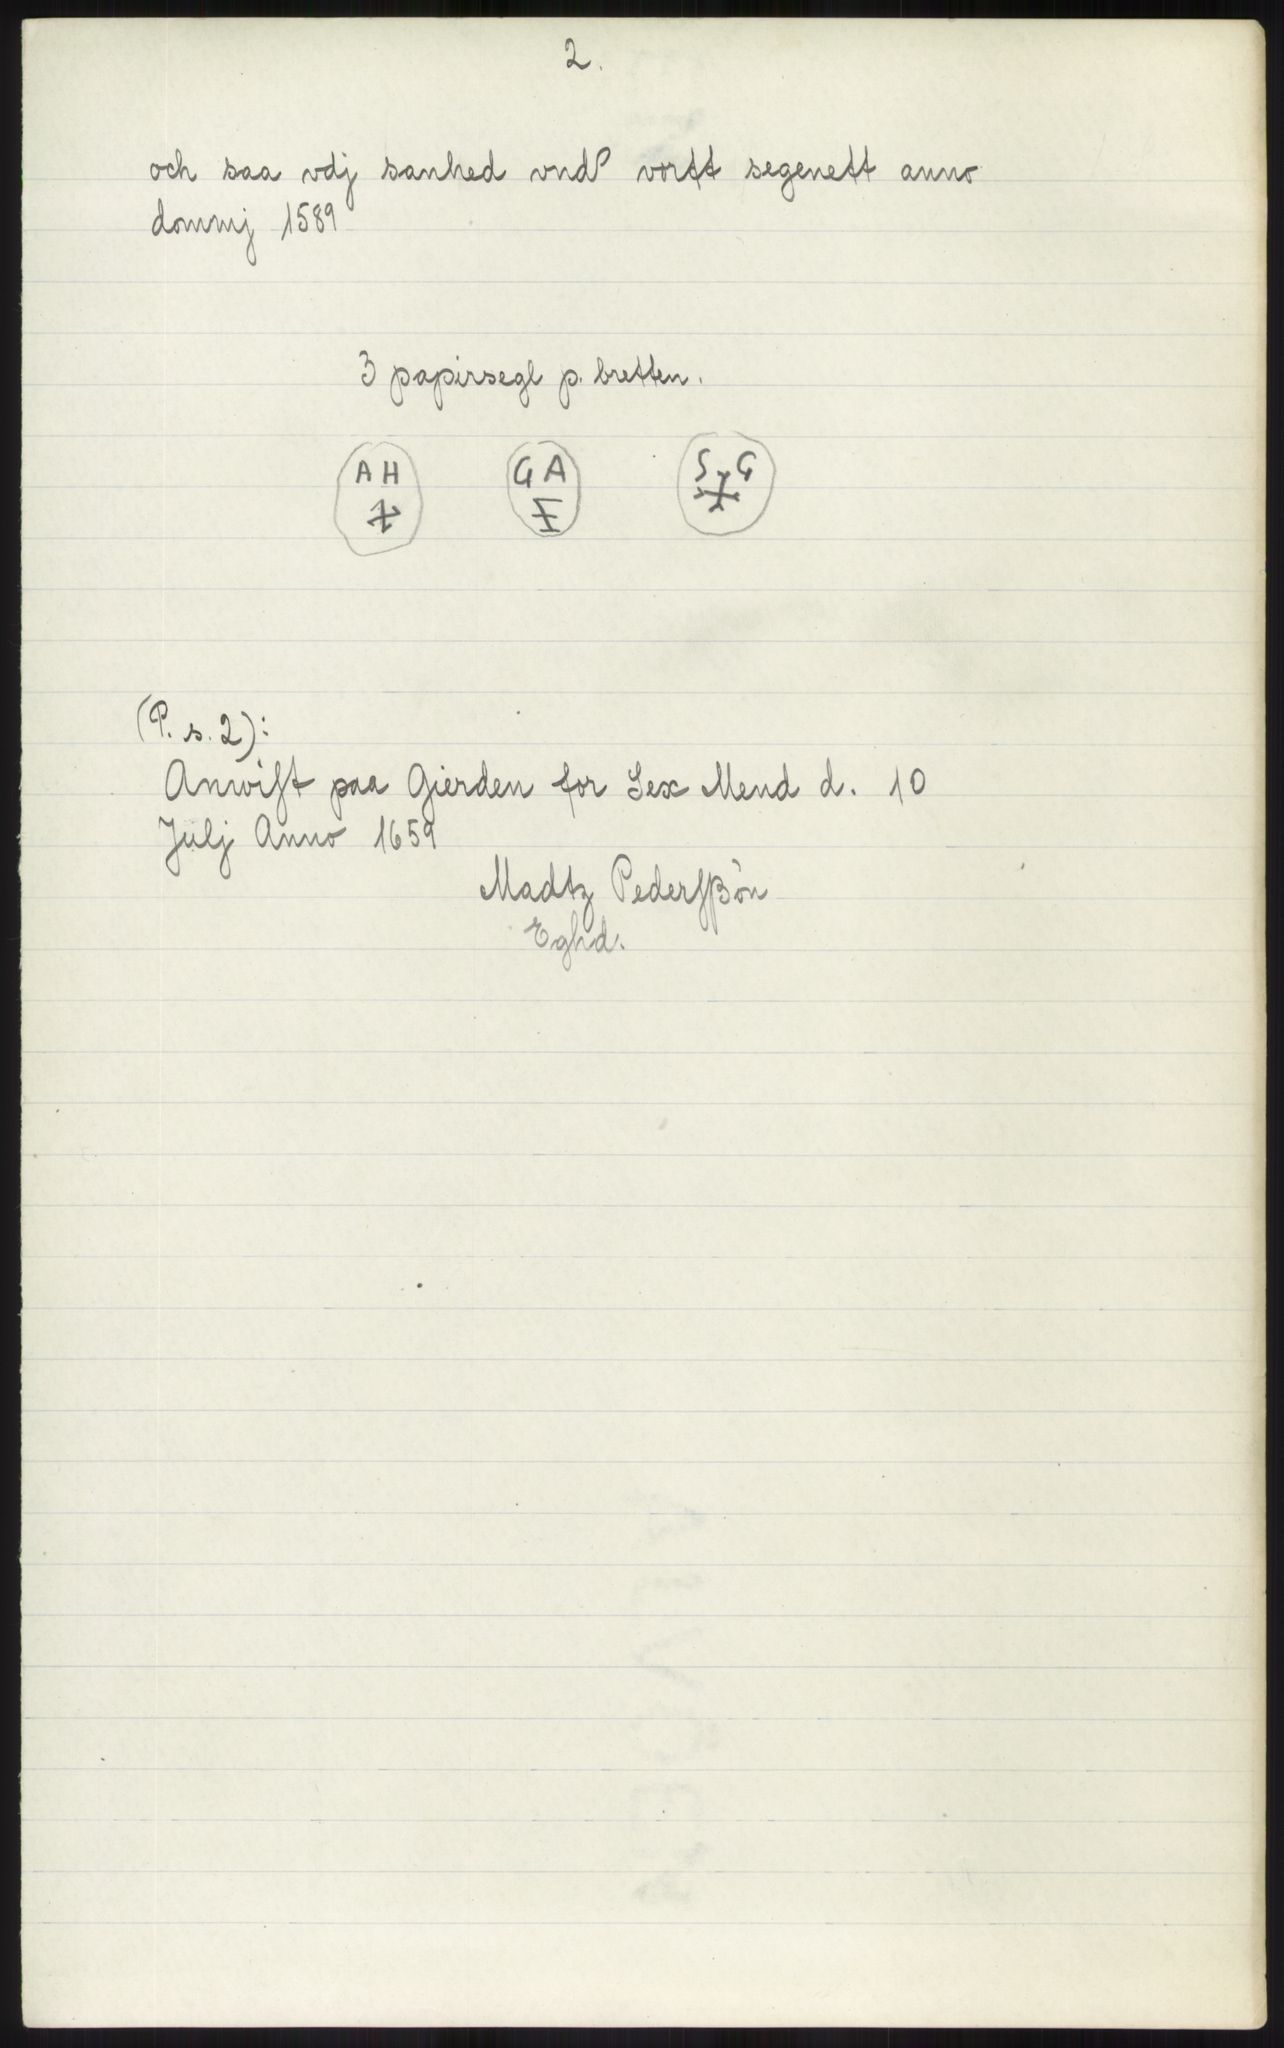 2.
och saa vdj sanhed vnd vortt segenett anno
dommj 1589
3 papirsegl p. bretten.
A H
G A
S G
(P. s. 2):
Anwist paa Gierden for Sex Mend d. 10
Julj Anno 1659
Madtz Pederssøn
Eghd.